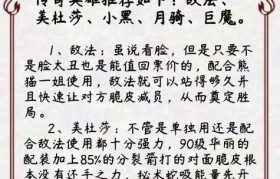 传奇英雄推荐如下：敌法、
美杜莎、小黑、月骑、巨魔。
1、敌法：虽说看脸，但是只要不
是脸太丑也是能值回票价的，配合熊
猫一姐使用，敌法就可以站得够久并
且快速让对方脆皮减员，从而奠定胜
局。
2、美杜莎：不管是单独用还是配
合敌法使用都十分强力，90级华丽的
配装加上85%的分裂箭打的对面脆皮根
本没有还手之力，秘术蛇吸能量先开